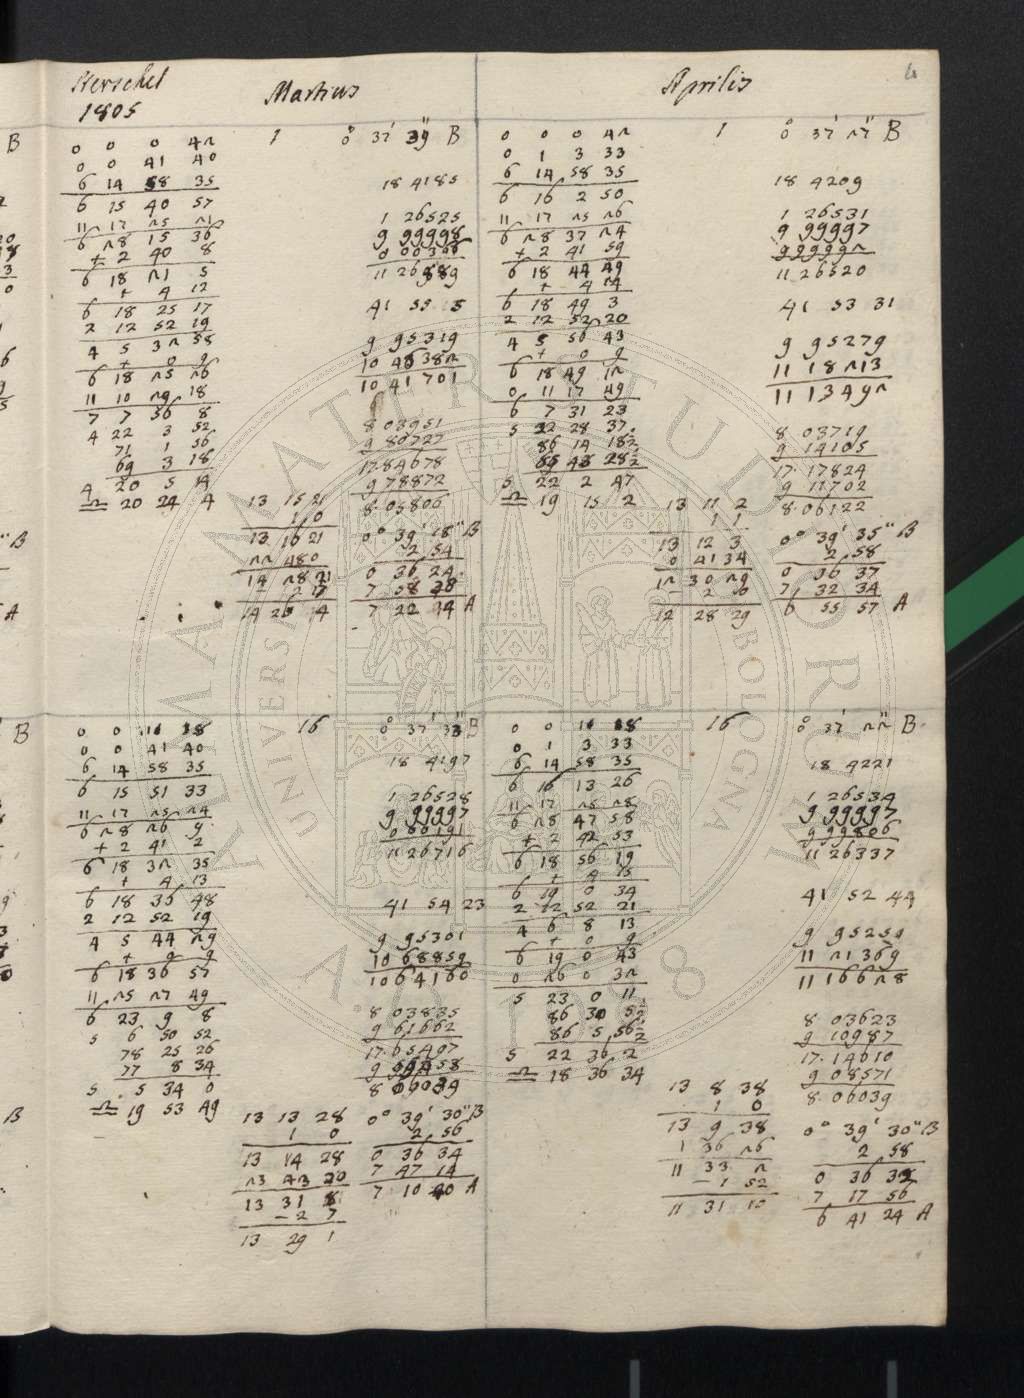 Herschel
1805
Martius
Aprilis
1
0° 37' 39" B
0 0 0 42
0 0 41 40
6 14 58 35
6 15 40 57
11 17 25 21
6 28 15 36
+ 2 40 8
6 18 21 5
+ 4 12
6 18 25 17
2 12 52 19
4 5 32 58
+ 0 9
6 18 25 26
11 10 29 18
7 7 56 8
4 22 3 52
71 1 56
69 3 18
4 20 5 14
♎ 20 24 4
18 4185
1 26525
9 99998
11 26889
41 55 3
9 95319
10 46382
10 41701
8 03951
9 80727
17 84678
9 78872
8 05806
13 15 21
1 0
13 16 21
22 48 0
14 28 21
2 17
14 26 4
0° 39' 18" B
2 54
0 36 24
7 58 38
7 22 14 A
1
0° 37' 27" B
0 0 0 42
0 1 3 33
6 14 58 35
6 16 2 50
11 17 25 26
6 28 37 24
+ 2 41 59
6 18 44 49
+ 4 14
6 18 49 3
2 12 52 20
4 5 56 43
+ 0 9
6 18 49 12
0 11 17 49
6 7 31 23
5 22 28 37
86 14 18½
85 48 28½
5 22 2 47
♎ 19 15 2
18 4209
1 26531
9 99997
9 99992
11 26520
41 53 31
9 95279
11 18213
11 13492
8 03719
9 14105
17 17824
9 11702
8 06122
13 11 2
1 1
13 12 3
0 41 34
12 30 29
- 2 0
12 28 29
0° 39' 35" B
2 58
0 36 37
7 32 34
6 55 57 A
16
0° 37' 33" B
0 0 11 18
0 0 41 40
6 14 58 35
6 15 51 33
11 17 25 24
6 28 26 9
+ 2 41 2
6 18 32 35
+ 4 13
6 18 36 48
2 12 52 19
4 5 44 29
+ 0 9
6 18 36 57
11 25 27 49
6 23 9 8
5 6 50 52
78 25 26
77 8 34
5 5 34 0
♎ 19 53 49
18 4197
1 26528
9 99997
0 00191
11 26716
41 54 23
9 95301
10 68859
10 64160
8 03835
9 61662
17 65497
9 59458
8 06039
13 13 28
1 0
13 14 28
23 43 20
13 31 8
- 2 7
13 29 1
0° 39' 30" B
2 56
0 36 34
7 47 14
7 10 40 A
16
0° 37' 22" B
0 0 11 18
0 1 3 33
6 14 58 35
6 16 13 26
11 17 25 28
6 28 47 58
+ 2 42 53
6 18 56 19
+ 4 15
6 19 0 34
2 12 52 21
4 6 8 13
+ 0 9
6 19 0 43
0 26 0 32
5 23 0 11
86 30 5½
86 5 56½
5 22 36 2
♎ 18 36 34
18 4221
1 26534
9 99997
9 99806
11 26337
41 52 44
9 95259
11 21369
11 16628
8 03623
9 10987
17 14610
9 08571
8 06039
13 8 38
1 0
13 9 38
1 36 26
11 33 2
- 1 52
11 31 10
0° 39' 30" B
2 58
0 36 32
7 17 56
6 41 24 A